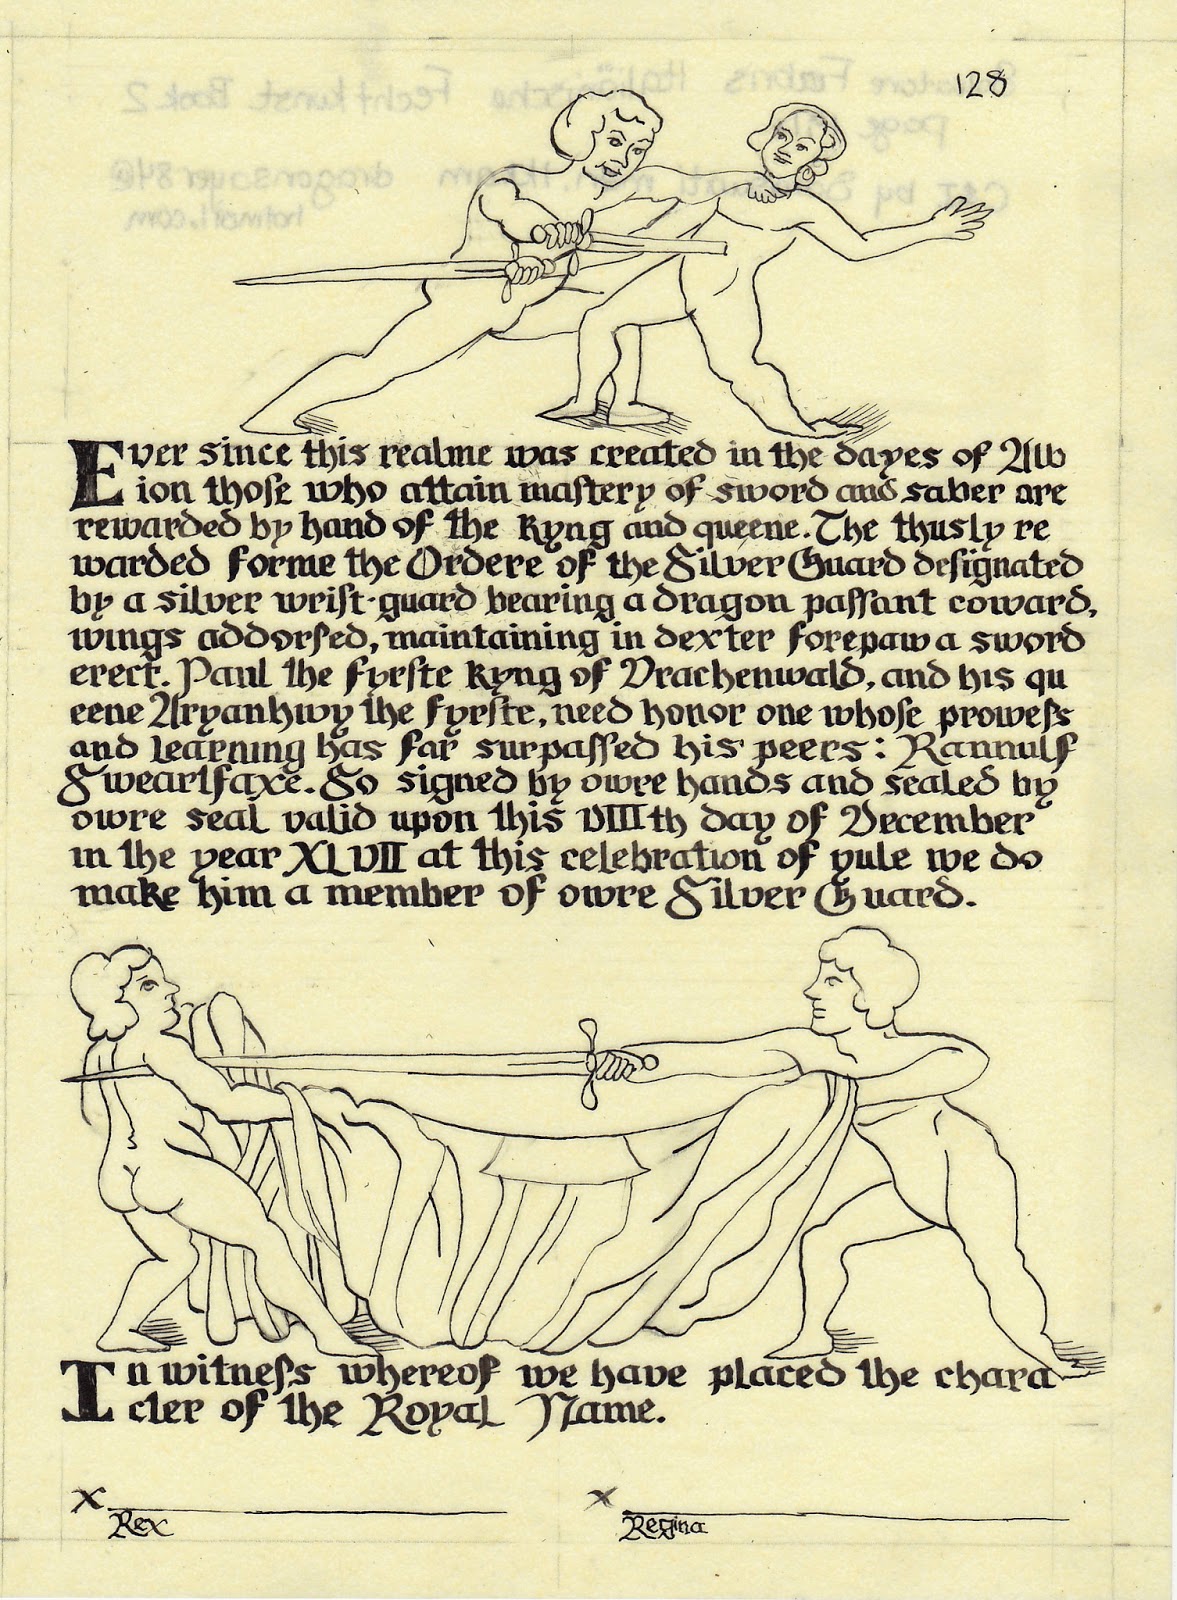 128
Ever since this realme was created in the dayes of Alb
ion those who attain mastery of sword and saber are
rewarded by hand of the Kyng and queene. The thusly re
warded forme the Ordere of the Silver Guard designated
by a silver wrist-guard bearing a dragon passant coward,
wings addorsed, maintaining in dexter forepaw a sword
erect. Paul the fyrste Kyng of Drachenwald, and his qu
eene Aryanhwy the fyrste, need honor one whose prowess
and learning has far surpassed his peers: Rannulf
Sweartfaxe. So signed by owre hands and sealed by
owre seal valid upon this VIIIth day of December
in the year XLVII at this celebration of yule we do
make him a member of owre Silver Guard.
In witness whereof we have placed the chara
cter of the Royal Name.
x x
Rex Regina